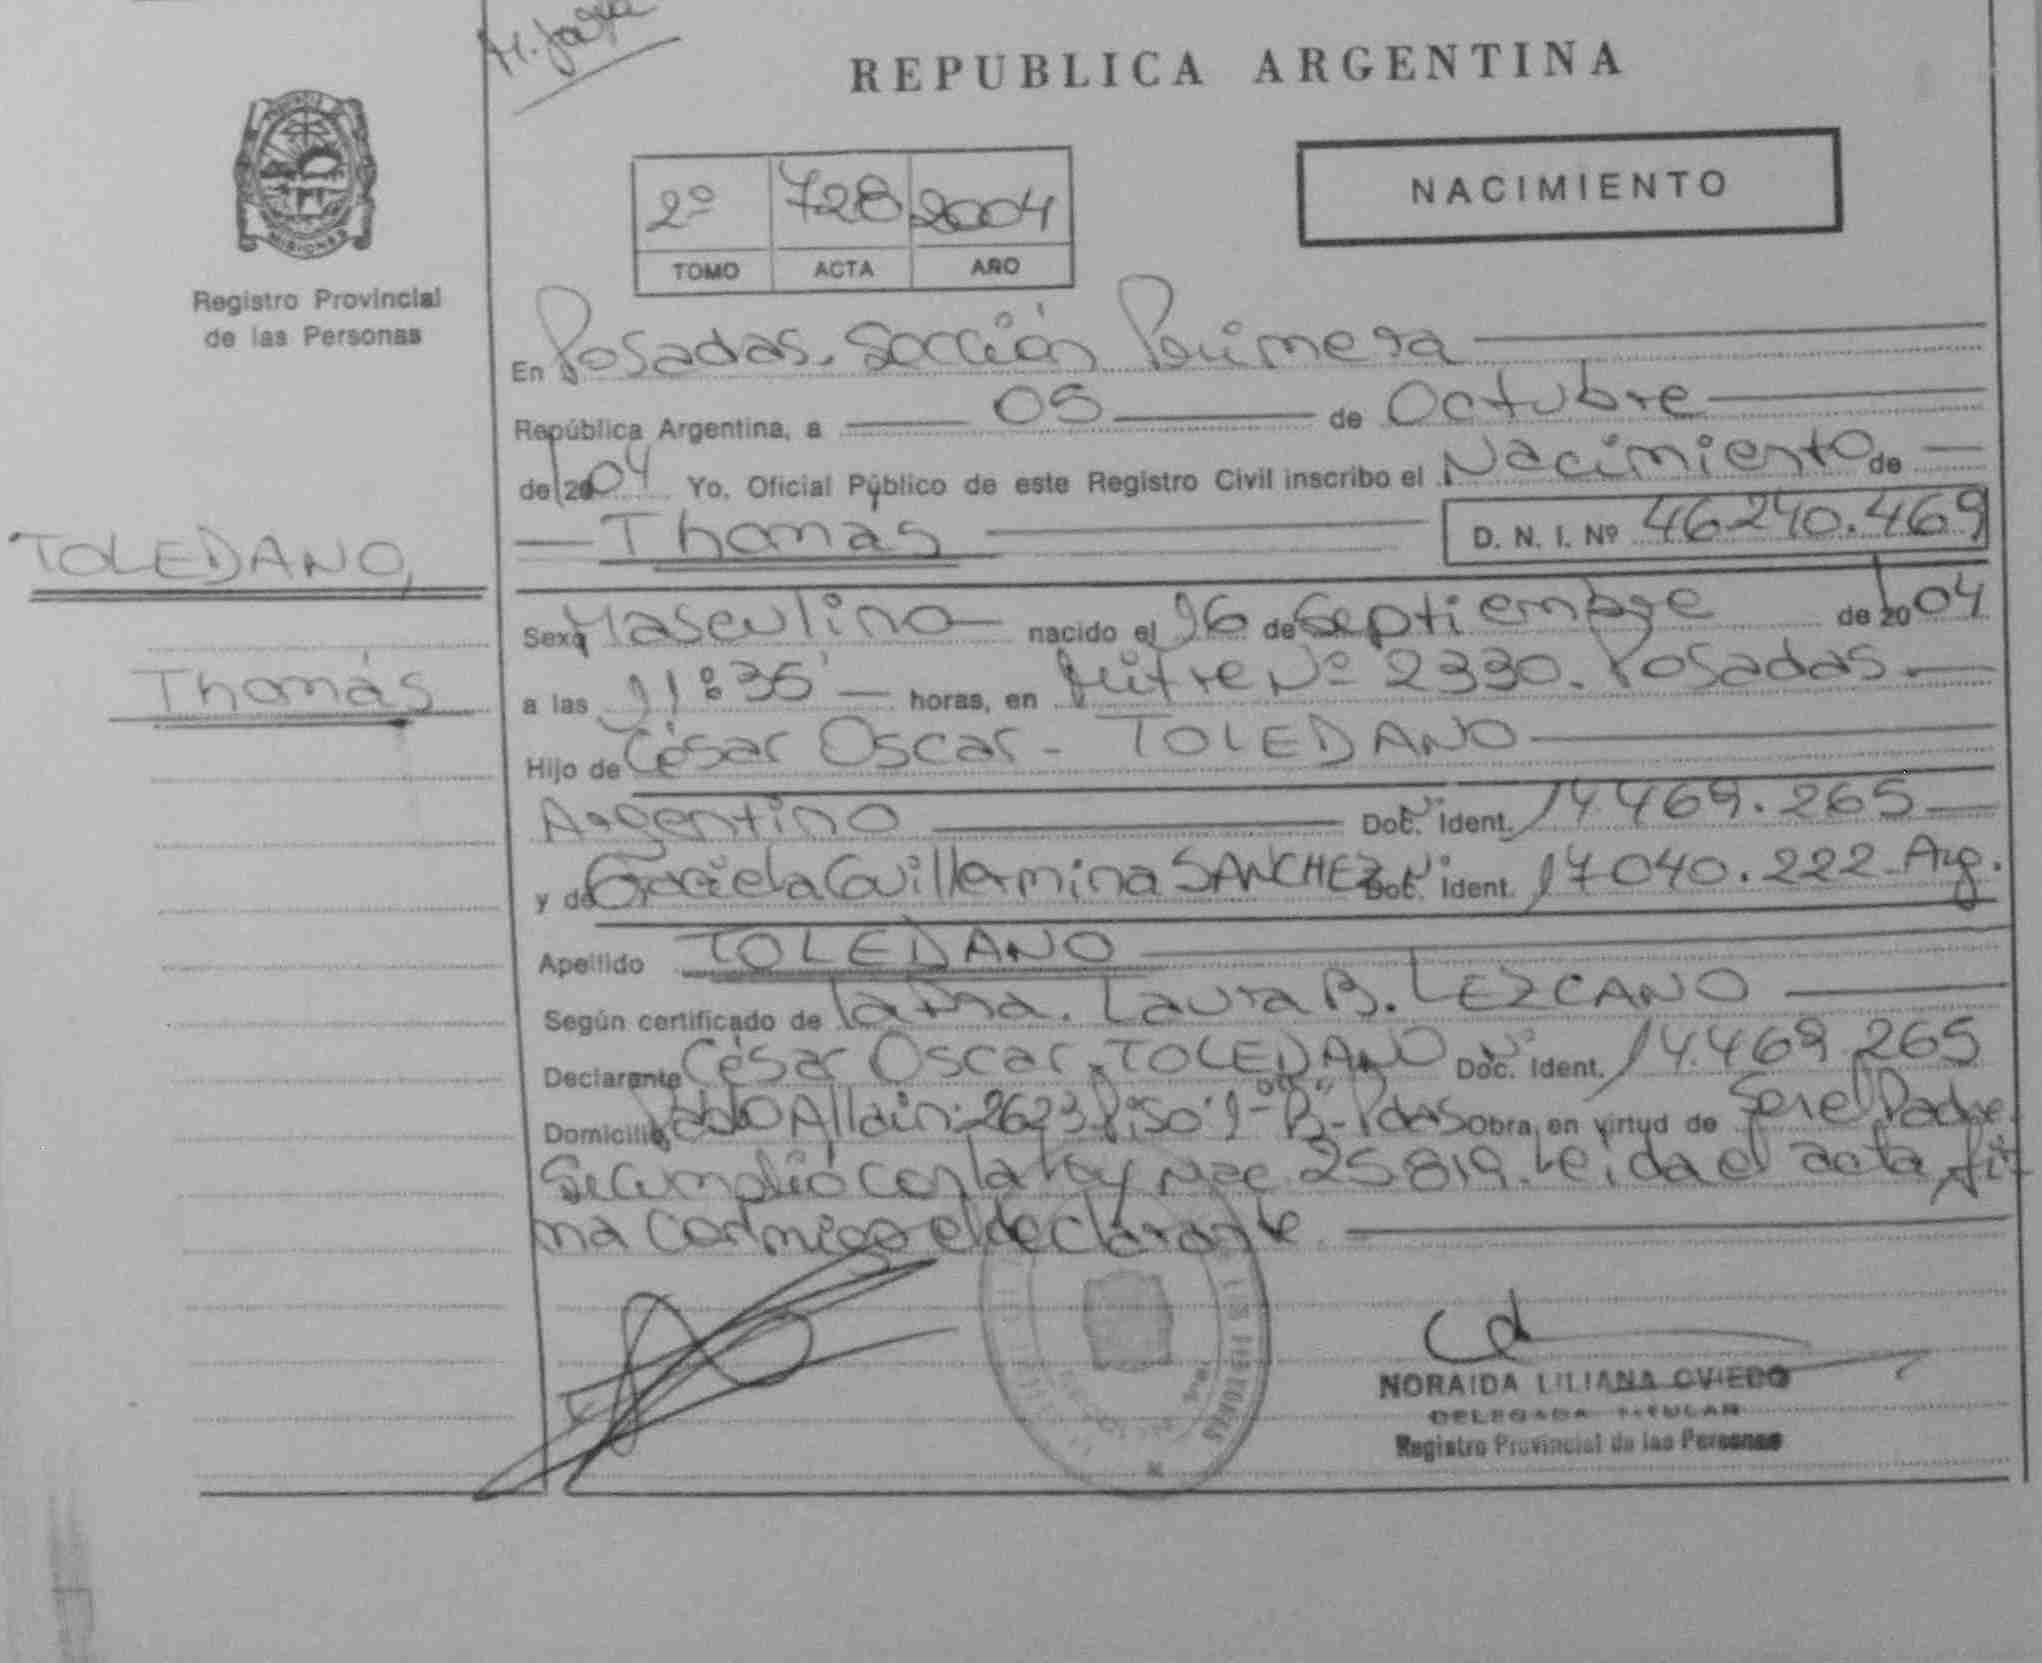 REPUBLICA ARGENTINA
MISIONES
Registro Provincial
de las Personas
2º 728 2004
TOMO ACTA AÑO
NACIMIENTO
En Posadas. Sección Primera
República Argentina, a 05 de Octubre
de 2004 Yo. Oficial Público de este Registro Civil inscribo el Nacimiento de
Thomás D. N. I. Nº 46240.469
TOLEDANO,
Thomás
Sexo Masculino nacido el 16 de Septiembre de 2004
a las 11:35' horas, en Mitre Nº 2330. Posadas
Hijo de César Oscar - TOLEDANO
Argentino Doc. Ident. 14469.265
y de Graciela Guillermina SANCHEZ Doc. Ident. 17040.222 Arg.
Apellido TOLEDANO
Según certificado de la Dra. Laura B. LEZCANO
Declarante César Oscar - TOLEDANO Doc. Ident. 14.469.265
Domicilio Pablo Allain: 2623 Piso 1º "B" - Pdas Obra en virtud de Ser el Padre
Se cumplió con la Ley Nac. 25819. Leída el acta, fir
ma conmigo el declarante
NORAIDA LILIANA OVIEDO
DELEGADA TITULAR
Registro Provincial de las Personas